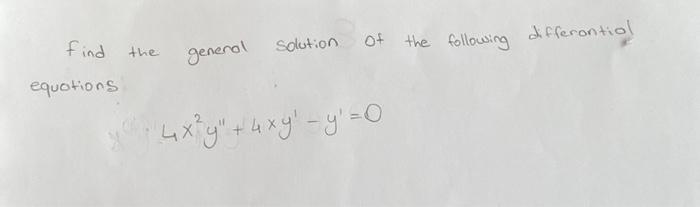 find the general solution of the following differential
equations
4x²y" + 4xy' - y' = 0